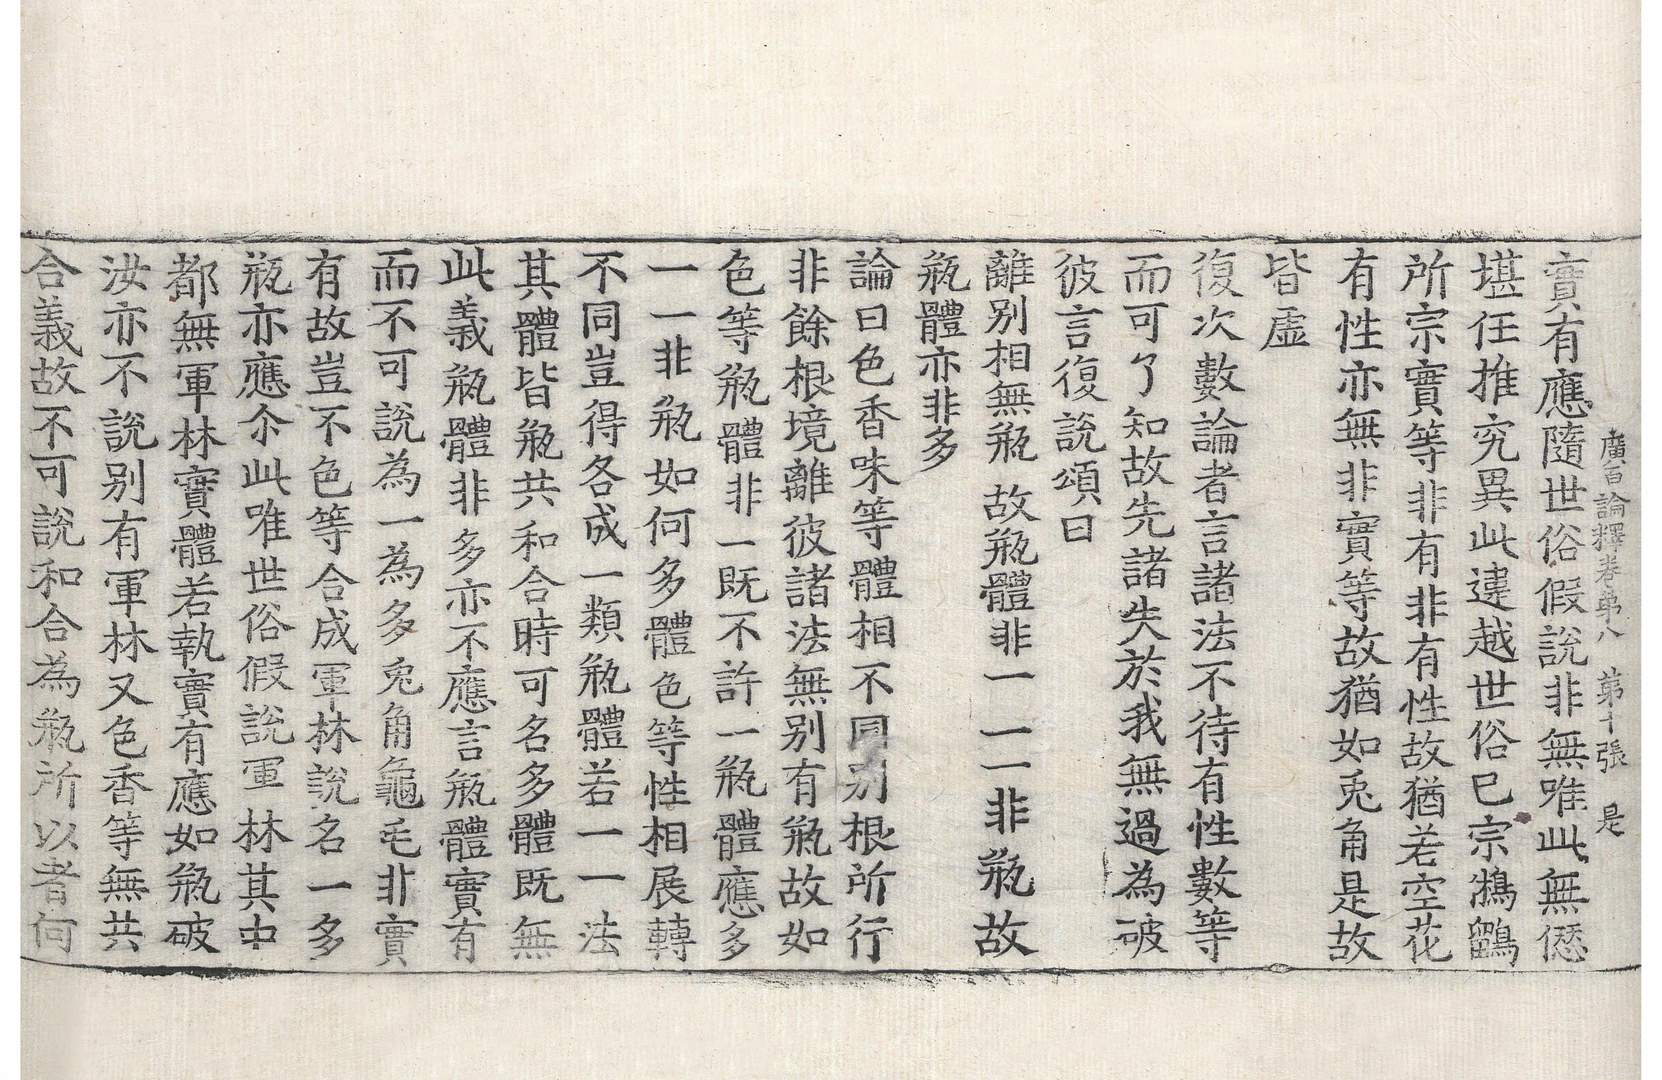 廣百論釋卷第八　第十張　是
實有應隨世俗假說非無唯此無𠎝
堪任推究異此違越世俗已宗鵂鶹
所宗實等非有非有性故猶若空花
有性亦無非實等故猶如兎角是故
皆虛
復次數論者言諸法不待有性數等
而可了知故先諸失於我無過為破
彼言復說頌曰
離別相無甁　故甁體非一　一一非甁故
甁體亦非多
論曰色香味等體相不同別根所行
非餘根境離彼諸法無別有甁故如
色等甁體非一旣不許一甁體應多
一一非甁如何多體色等性相展轉
不同豈得各成一類甁體若一一法
其體皆甁共和合時可名多體旣無
此義甁體非多亦不應言甁體實有
而不可說為一為多兎角龜毛非實
有故豈不色等合成軍林說名一多
甁亦應尒此唯世俗假說軍林其中
都無軍林實體若執實有應如甁破
汝亦不說別有軍林又色香等無共
合義故不可說和合為甁所以者何